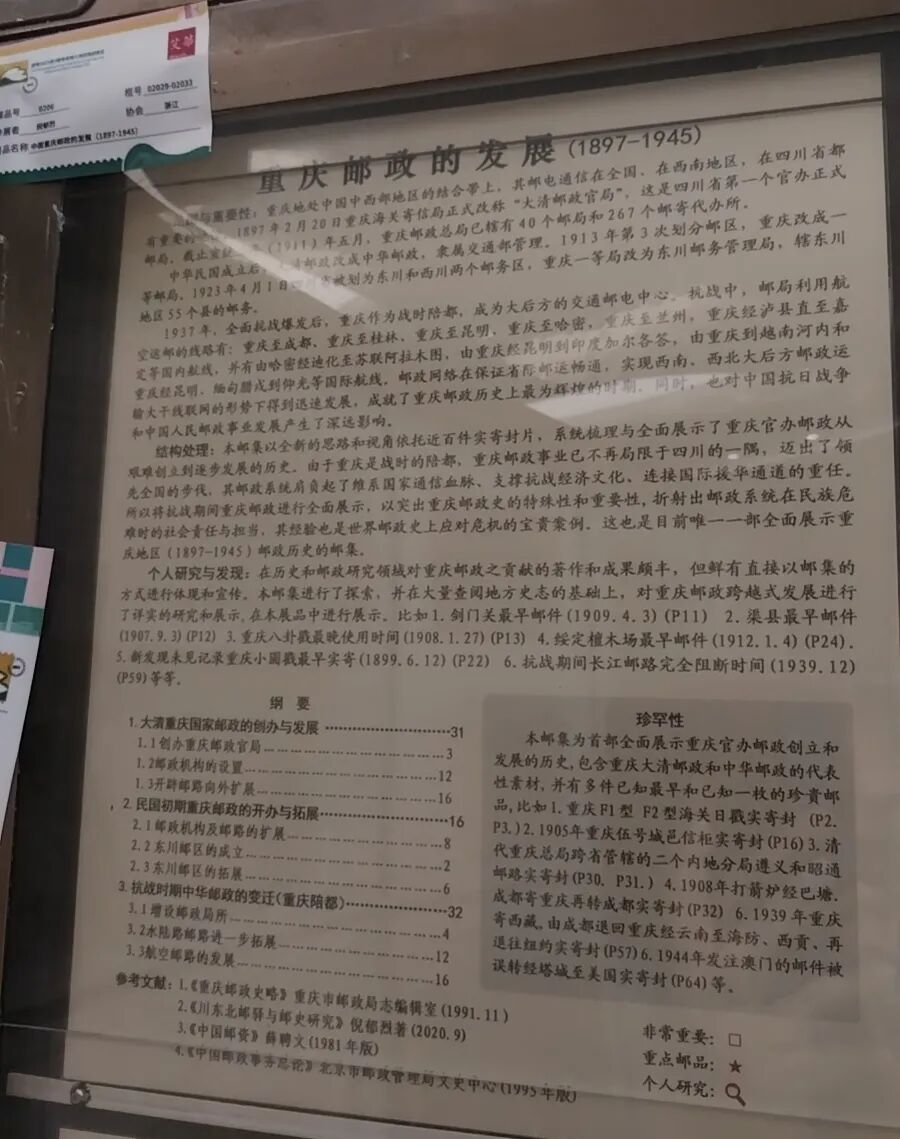 艾华
展品号 0206 框号 02029-02033
参展者 倪郁烈 协会 浙江
展品名称 中国重庆邮政的发展（1897-1945）
重庆邮政的发展(1897-1945)
与重要性：重庆地处中国中西部地区的结合带上，其邮电通信在全国、在西南地区，在四川省都
有重要的 1897年2月20日重庆海关寄信局正式改称“大清邮政官局”，这是四川省第一个官办正式
邮局。截止宣统 (1911)年五月，重庆邮政总局已辖有40个邮局和267个邮寄代办所。
中华民国成立后， 清邮政改成中华邮政，隶属交通部管理。1913年第3次划分邮区，重庆改成一
等邮局。1923年4月1日四川省被划为东川和西川两个邮务区，重庆一等局改为东川邮务管理局，辖东川
地区55个县的邮务。
1937年，全面抗战爆发后，重庆作为战时陪都，成为大后方的交通邮电中心。抗战中，邮局利用航
空运邮的线路有：重庆至成都、重庆至桂林、重庆至昆明、重庆至哈密，重庆至兰州，重庆经泸县直至嘉
定等国内航线，并有由哈密经迪化至苏联阿拉木图，由重庆经昆明到印度加尔各答，由重庆到越南河内和
重庆经昆明、缅甸腊戌到仰光等国际航线。邮政网络在保证省际邮运畅通，实现西南、西北大后方邮政运
输大干线联网的形势下得到迅速发展，成就了重庆邮政历史上最为辉煌的时期。同时，也对中国抗日战争
和中国人民邮政事业发展产生了深远影响。
结构处理：本邮集以全新的思路和视角依托近百件实寄封片，系统梳理与全面展示了重庆官办邮政从
艰难创立到逐步发展的历史。由于重庆是战时的陪都，重庆邮政事业已不再局限于四川的一隅，迈出了领
先全国的步伐，其邮政系统肩负起了维系国家通信血脉、支撑抗战经济文化、连接国际援华通道的重任。
所以将抗战期间重庆邮政进行全面展示，以突出重庆邮政史的特殊性和重要性，折射出邮政系统在民族危
难时的社会责任与担当，其经验也是世界邮政史上应对危机的宝贵案例。这也是目前唯一一部全面展示重
庆地区(1897-1945)邮政历史的邮集。
个人研究与发现：在历史和邮政研究领域对重庆邮政之贡献的著作和成果颇丰，但鲜有直接以邮集的
方式进行体现和宣传。本邮集进行了探索，并在大量查阅地方史志的基础上，对重庆邮政跨越式发展进行
了详实的研究和展示，在本展品中进行展示。比如1.剑门关最早邮件(1909.4.3)(P11) 2.渠县最早邮件
(1907.9.3)(P12) 3.重庆八卦戳最晚使用时间(1908.1.27)(P13) 4.绥定檀木场最早邮件(1912.1.4)(P24).
5.新发现未见记录重庆小圆戳最早实寄(1899.6.12)(P22) 6.抗战期间长江邮路完全阻断时间(1939.12)
(P59)等等。
纲 要
1.大清重庆国家邮政的创办与发展………………31
1.1创办重庆邮政官局………………3
1.2邮政机构的设置………………12
1.3开辟邮路向外扩展………………16
2.民国初期重庆邮政的开办与拓展………………16
2.1邮政机构及邮路的扩展………………8
2.2东川邮区的成立………………2
2.3东川邮区的拓展………………6
3.抗战时期中华邮政的变迁(重庆陪都)………………32
3.1增设邮政局所………………4
3.2水陆路邮路进一步拓展………………12
3.3航空邮路的发展………………16
参考文献：1.《重庆邮政史略》重庆市邮政局志编辑室(1991.11)
2.《川东北邮驿与邮史研究》倪郁烈著(2020.9)
3.《中国邮资》薛聘文(1981年版)
4.《中国邮政事务总论》北京市邮政管理局文史中心(1995年版)
珍罕性
本邮集为首部全面展示重庆官办邮政创立和
发展的历史，包含重庆大清邮政和中华邮政的代表
性素材，并有多件已知最早和已知一枚的珍贵邮
品，比如1.重庆F1型 F2型海关日戳实寄封 (P2.
P3.)2.1905年重庆伍号城邑信柜实寄封(P16)3.清
代重庆总局跨省管辖的二个内地分局遵义和昭通
邮路实寄封(P30.P31.) 4.1908年打箭炉经巴塘.
成都寄重庆再转成都实寄封(P32) 6.1939年重庆
寄西藏,由成都退回重庆经云南至海防、西贡、再
退往纽约实寄封(P57)6.1944年发注澳门的邮件被
误转经塔城至美国实寄封(P64)等。
非常重要：□
重点邮品：★
个人研究：